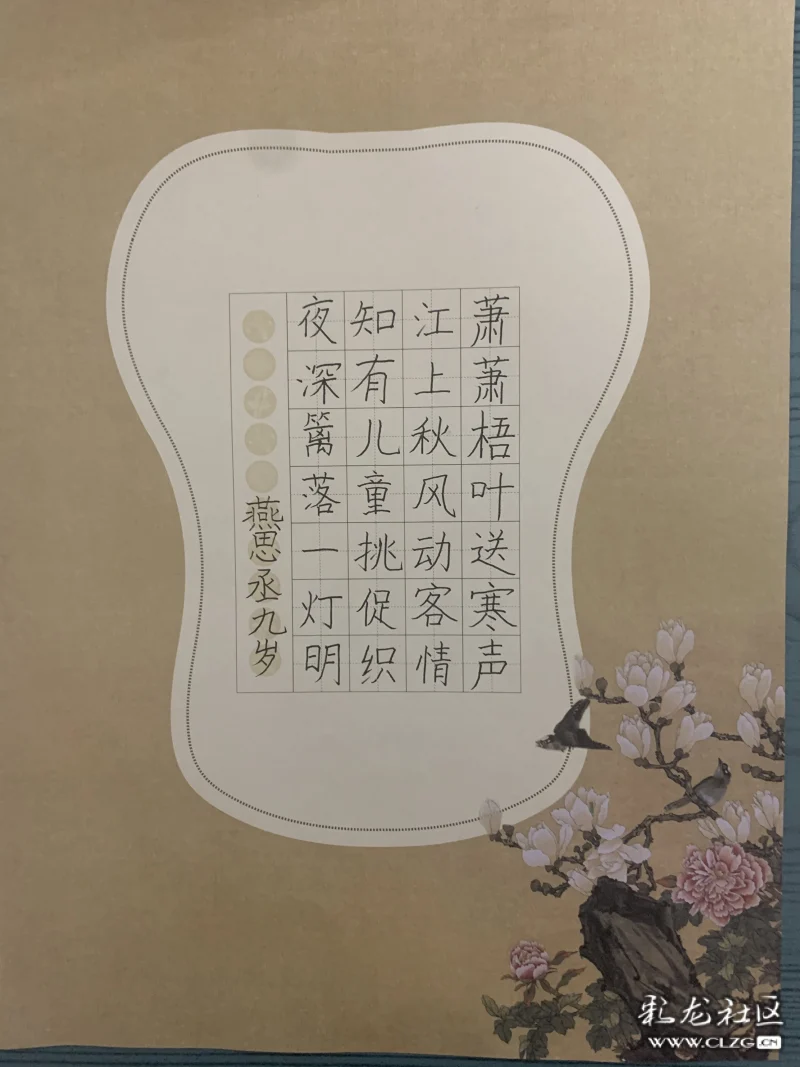 萧萧梧叶送寒声
江上秋风动客情
知有儿童挑促织
夜深篱落一灯明
燕思丞九岁
彩龙社区
WWW.CLZG.CN